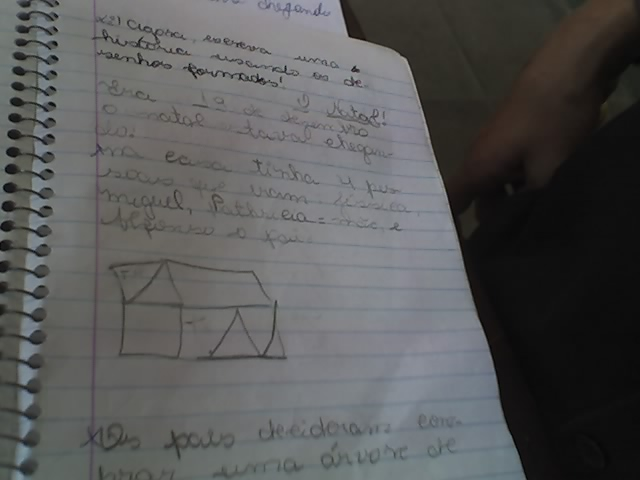 chegando
x2) Agora, escreva uma
história usando os de-
senhos formados!
1) Natal!
Era 12 de dezembro
o natal estava chegan-
do.
na casa tinha 4 pes
soas que eram
miguel, mãe e
o pai.
x Os pais decidiram com
prar uma árvore de